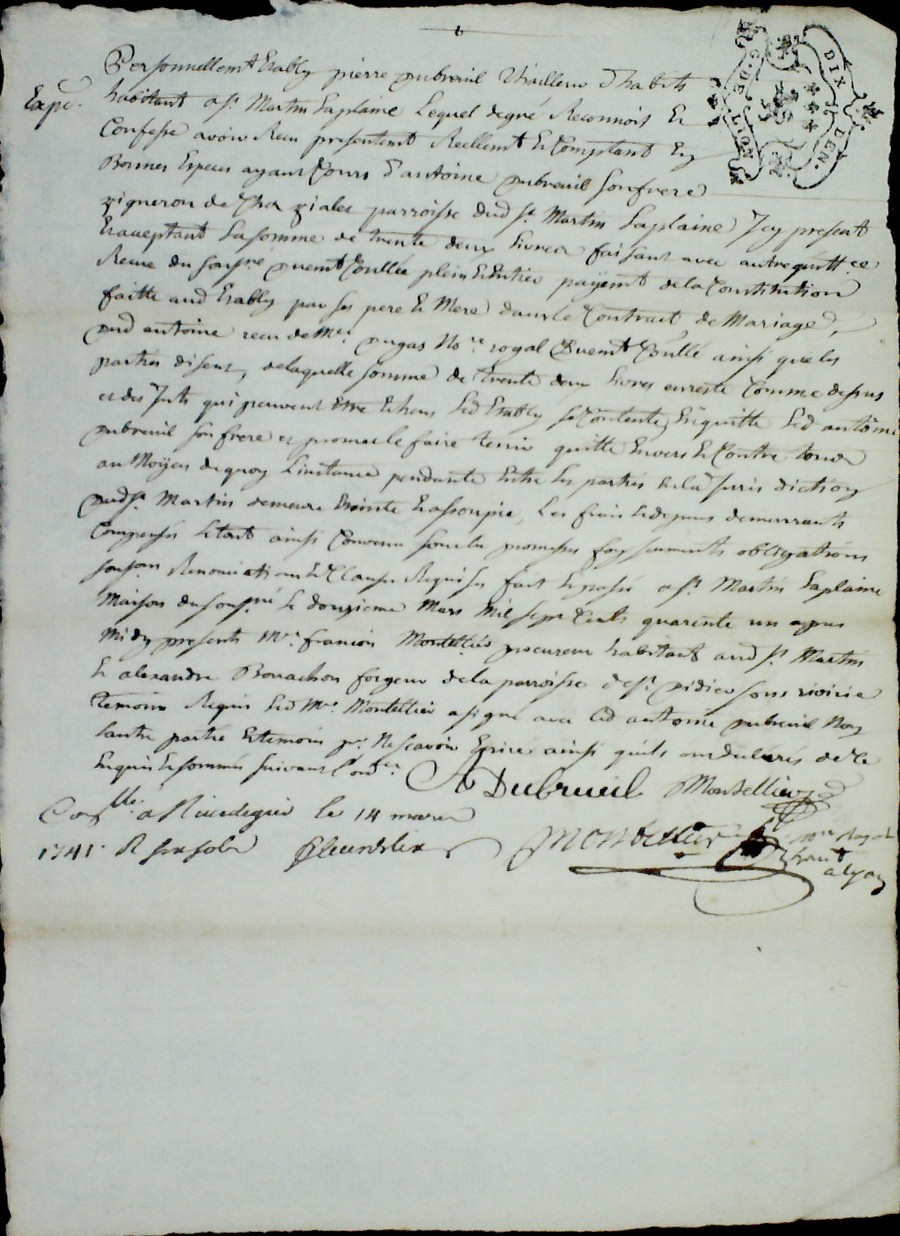 G. DE LION
DIX DEN.
Expé.
Personnellemt Estably pierre Dubreuil Thailleur D'habits
habitant a st Martin Laplaine Lequel degré Reconnois Et
Confesse avoir Reçu presentemt Reellemt Et Comptant En
Bonnes Especes ayant Cours D'antoine Dubreuil son frere
vigneron de parroisse dud st Martin Laplaine Icy present
Et acceptant La somme de trente deux Livres faisant avec autre quittce
Reçue du soussné Duemt Conllée plein Et Entier payemt de la Constitution
faitte aud Estably par ses pere Et Mere dans le Contract de Mariage
Dud antoine reçu de Me Dugas Nore royal Duemt Conllé ainsi que les
parties disent, de laquelle somme de Trente deux Livres en reste Comme dessus
et des qui peuvent Etre Echeus Led Estably se Contente En quitte Led antoine
Dubreuil son frere et promet le faire tenir quitte Envers Et Contre tous
au Moÿen de quoy L'instance pendante Entre Les parties En la Jurisdiction
Dud st Martin demeure Eteinte Et assoupie, Les frais Et depens demeurants
Compensés Etant ainsi Convenu sous les promesses soy serments obligations
Renonciations Et Clauses Requises fait Et passé a st Martin Laplaine
Maison du soussné Le douzieme Mars Mil sept Cents quarente un apres
Midy presents Mre francois Montellier procureur habitant aud st Martin
Et alexandre Bonachon forgeur de la parroisse de st Didier sous rivirie
temoins Requis Led Mre Montellier a signé avec Led antoine Dubreuil Non
Lautre partie Et temoin pr Ne scavoir Ecrire ainsi quils ont declarés de Ce
Enquis Et sommés suivant L'ordce
A Dubreuil Montellier
Conllé a Rivedegier Le 14 mars
1741. R six sols
Montellier Nre Royal
a Lyon